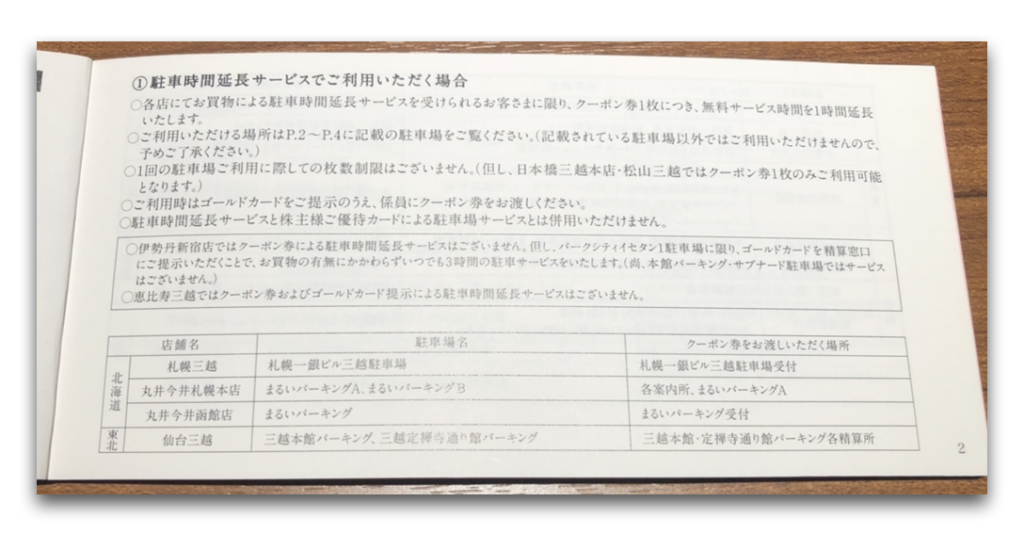 ①駐車時間延長サービスでご利用いただく場合
○各店にてお買物による駐車時間延長サービスを受けられるお客さまに限り、クーポン券1枚につき、無料サービス時間を1時間延長
いたします。
○ご利用いただける場所はP.2～P.4に記載の駐車場をご覧ください。(記載されている駐車場以外ではご利用いただけませんので、
予めご了承ください。)
○1回の駐車場ご利用に際しての枚数制限はございません。(但し、日本橋三越本店・松山三越ではクーポン券1枚のみご利用可能
となります。)
○ご利用時はゴールドカードをご提示のうえ、係員にクーポン券をお渡しください。
○駐車時間延長サービスと株主様ご優待カードによる駐車場サービスとは併用いただけません。
○伊勢丹新宿店ではクーポン券による駐車時間延長サービスはございません。但し、パークシティイセタン1駐車場に限り、ゴールドカードを精算窓口
にご提示いただくことで、お買物の有無にかかわらずいつでも3時間の駐車サービスをいたします。(尚、本館パーキング・サブナード駐車場ではサービス
はございません。)
○恵比寿三越ではクーポン券およびゴールドカード提示による駐車時間延長サービスはございません。
店舗名 駐車場名 クーポン券をお渡しいただく場所
北海道
札幌三越 札幌一銀ビル三越駐車場 札幌一銀ビル三越駐車場受付
丸井今井札幌本店 まるいパーキングA、まるいパーキングB 各案内所、まるいパーキングA
丸井今井函館店 まるいパーキング まるいパーキング受付
東北 仙台三越 三越本館パーキング、三越定禅寺通り館パーキング 三越本館・定禅寺通り館パーキング各精算所
2